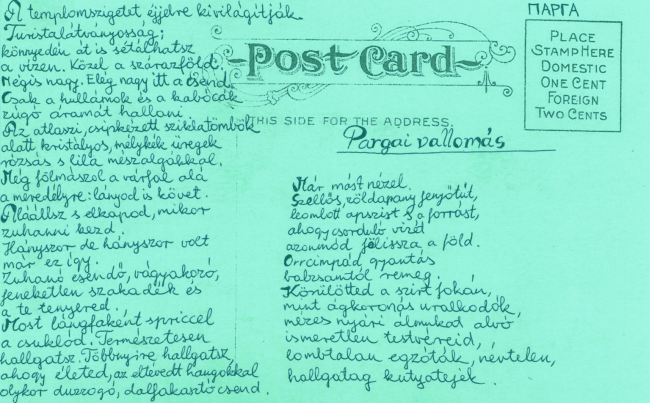 A templomszigetet éjjelre kivilágítják.
Turistalátványosság;
könnyedén át is sétálhatsz
a vízen. Közel a szárazföld.
Mégis nagy. Elég nagy itt a csend.
Csak a hullámok és a kabócák
zúgó áramát hallani.
Az atlaszi, csipkézett sziklatömbök
alatt kristályos, mélykék üregek
rózsás s lila mészalgákkal.
Még fölmászol a várfal alá
a meredélyre: lányod is követ.
Aláállsz s elkapod, mikor
zuhanni kezd.
Hányszor de hányszor volt
már ez így.
Zuhanó esendő, vágyakozó,
feneketlen szakadék és
a te tenyered.
Most lángfaként spriccel
a csuklód. Természetesen
hallgatsz. Többnyire hallgatsz,
ahogy életed, az eltévedt hangokkal
olykor duzzogó, dalfakasztó csend.
Post Card
THIS SIDE FOR THE ADDRESS.
ΠΑΡΓΑ
PLACE
STAMP HERE
DOMESTIC
ONE CENT
FOREIGN
TWO CENTS
Pargai vallomás
Már mást nézel.
Szellős, zöldapany fenyőtűt,
leomlott apszist s a forrást,
ahogy csorduló vizét
azonmód fölissza a föld.
Orrcimpád gyantás
balzsamtól remeg.
Körülötted a szirt fokán,
mint ágkoronás uralkodók,
mézes nyári álmukat alvó
ismeretlen testvéreid,
lombtalan egzóták, névtelen,
hallgatag kutyatejek.